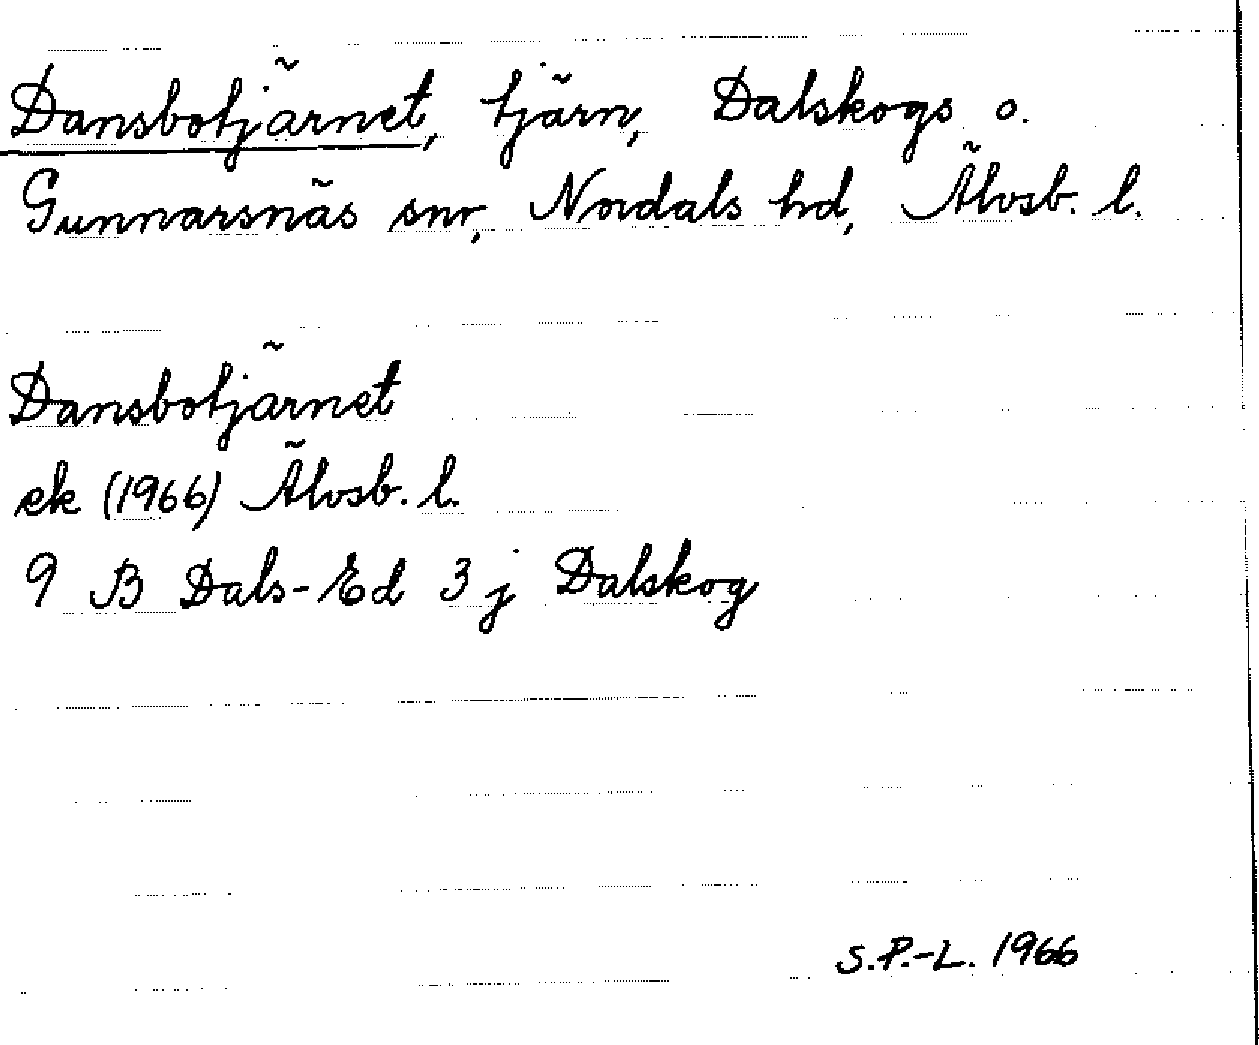 Dansbotjärnet, tjärn, Dalskogs o.
Gunnarsnäs snr, Nordals hd, Älvsb. l.
Dansbotjärnet
ek (1966) Älvsb. l.
9 B Dals-Ed 3 j Dalskog
S.P.-L. 1966